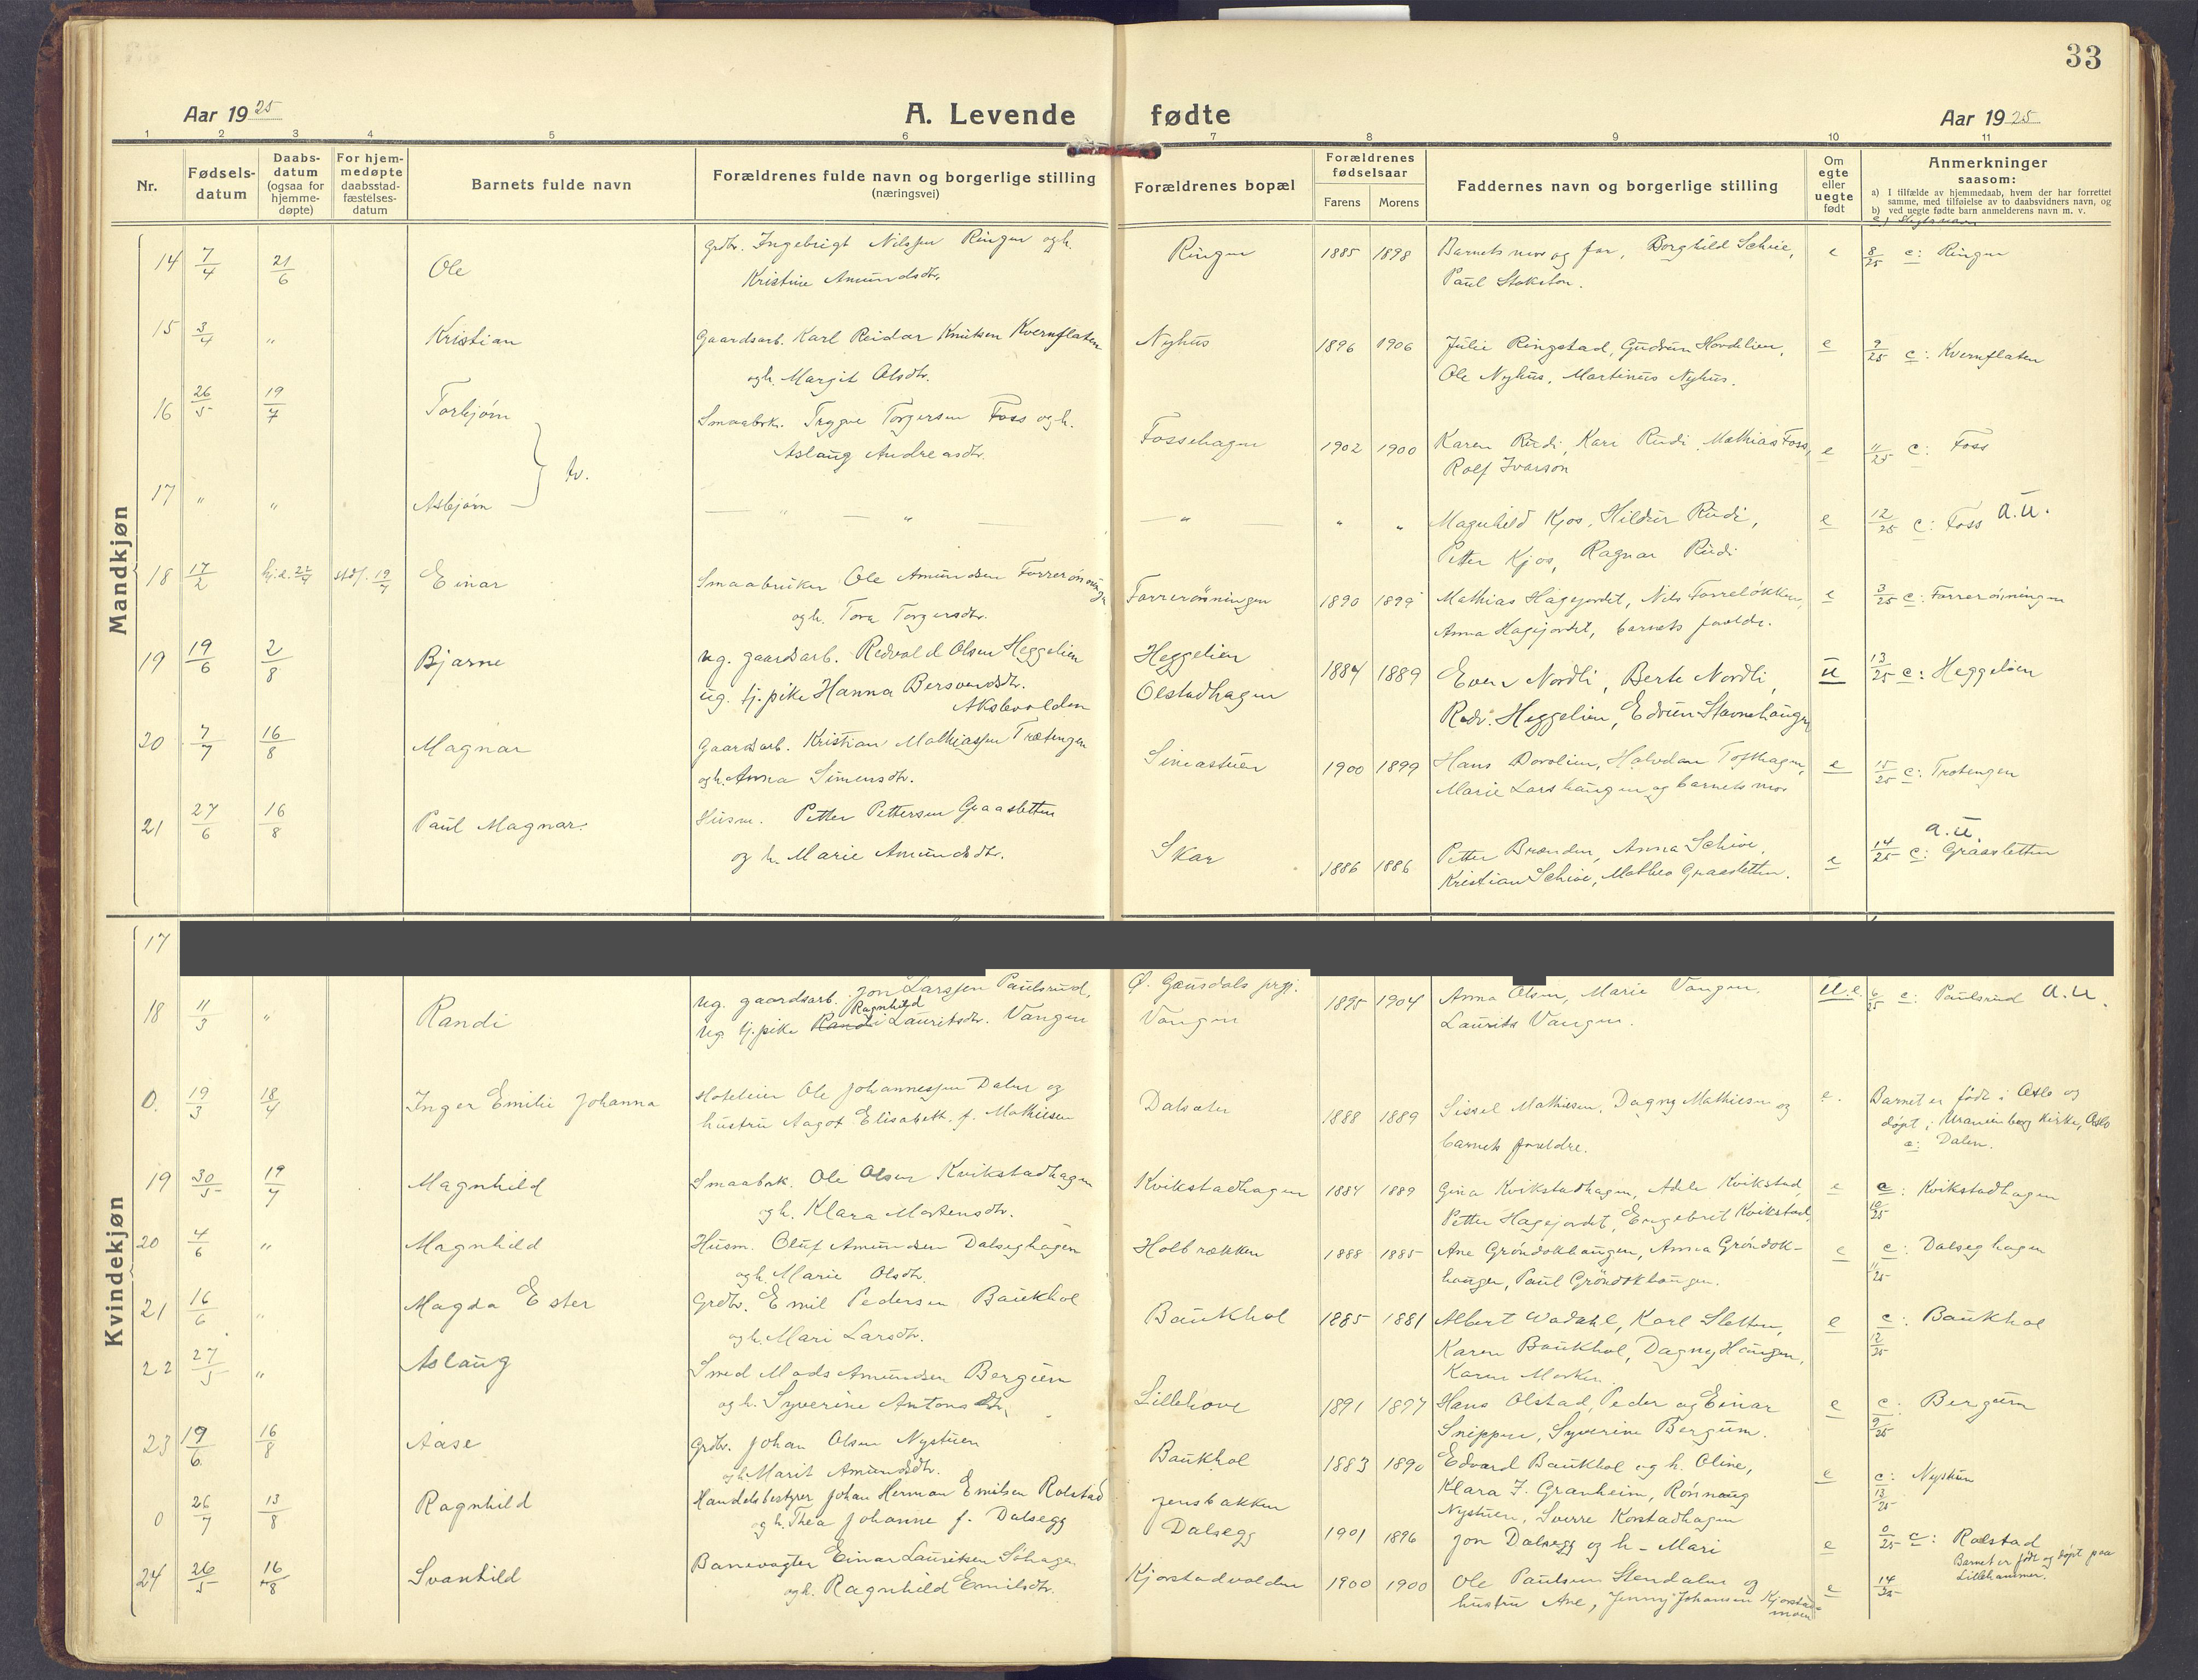 33
Aar 1925
A. Levende fødte
Aar 1925
1 2 3 4 5 6 7 8 9 10 11
Nr.
Fødsels-
datum
Daabs-
datum
(ogsaa for
hjemme-
døpte)
For hjem-
medøpte
daabsstad-
fæstelses-
datum
Barnets fulde navn
Forældrenes fulde navn og borgerlige stilling
(næringsvei)
Forældrenes bopæl
Forældrenes
fødselsaar
Farens Morens
Faddernes navn og borgerlige stilling
Om
egte
eller
uegte
født
Anmerkninger
saasom:
a) I tilfælde av hjemmedaab, hvem der har forrettet
samme, med tilføielse av to daabsvidners navn, og
b) ved uegte fødte barn anmelderens navn m. v.
c) Slegtsnavn
Mandkjøn
14 7/4 21/6 Ole
Grdbr. Ingebrigt Nilssen Ringen og h.
Kristine Amundsdtr.
Ringen 1885 1898
Barnets mor og far, Borghild Schie,
Paul Stokston.
e 8/25 c: Ringen
15 3/4 " Kristian
Gaardsarb. Karl Reidar Knutsen Kvernflaten
og h. Margit Olsdtr.
Nyhus 1896 1906
Julie Ringstad, Gudrun Hovdelien,
Ole Nyhus, Martinus Nyhus.
e 9/25 c: Kvernflaten
16 26/5 19/7 Torbjørn
Smaabrk. Trygve Torgersen Foss og h.
Aslaug Andreasdtr.
Fossehagen 1902 1900
Karen Rudi, Kari Rudi, Mathias Foss,
Rolf Ivarson
e 11/25 c: Foss
tv.
17 " " Asbjørn
— " — " — — " — " "
Magnhild Kjos, Hildur Rudi,
Petter Kjos, Ragnar Rudi
e 12/25 c: Foss a.u.
18 17/2 hj.d. 22/4 stdf. 19/7 Einar
Smaabruker Ole Amundsen Forrerønningen
og h. Tora Torgersdtr.
Forrerønningen 1890 1899
Mathias Hagejordet, Nils Forreløkken,
Anna Hagejordet, barnets forældr.
e 3/25 c: Forrerønningen
19 19/6 2/8 Bjarne
ug. gaardsarb. Redvald Olsen Heggelien
ug. tj.pike Hanna Bersvendsdtr.
Akslevolden
Heggelien
Olstadhagen
1884 1889
Even Nordli, Berte Nordli,
Redv. Heggelien, Edvin Stavnehaugen
u 13/25 c: Heggelien
20 7/7 16/8 Magnar
Gaardsarb. Kristian Mathiassen Trætengen
og h. Anna Simensdtr.
Simastuen 1900 1899
Hans Dorolien, Halvdan Tofthagen,
Marie Larshaugen og barnets mor
e 15/25 c: Trætengen
21 27/6 16/8 Paul Magnar.
Husm. Petter Pettersen Graasletten
og h. Marie Amundsdtr.
Skar 1886 1886
Petter Brænden, Anna Schive,
Kristian Schive, Mathea Graasletten.
e 14/25 c: Graasletten
a.u.
Kvindekjøn
17
18 11/3 " Randi
ug. gaardsarb. Jon Larssen Paulsrud,
Ragnhild
ug. tj.pike Randi Lauritsdtr. Vangen
Ø. Gausdals prgj.
Vangen
1895 1904
Anna Olsen, Marie Vangen,
Laurits Vangen.
U.e. 6/25 c: Paulsrud a.u.
0. 19/3 18/4 Inger Emilie Johanna
Hoteleier Ole Johannessen Dalen og
hustru Aagot Elisabeth f. Mathiesen
Dalseter 1888 1889
Sissel Mathiesen, Dagny Mathiesen og
barnets forældre.
e. Barnet er født i Oslo og
døpt i Uranienborg kirke, Oslo
c: Dalen.
19 30/5 19/7 Magnhild
Smaabrk. Ole Olsen Kvikstadhagen
og h. Klara Mortensdtr.
Kvikstadhagen 1884 1889
Gina Kvikstadhagen, Adele Kvikstad,
Petter Hagejordet, Engebret Kvikstad,
e c: Kvikstadhagen
10/25
20 4/6 " Magnhild
Husm. Oluf Amundsen Dalseghagen
og h. Marie Olsdtr.
Holbrækken 1888 1885
Ane Grøndokhaugen, Anna Grøndok-
haugen, Paul Grøndokhaugen.
e c: Dalseghagen
11/25
21 16/6 " Magda Ester
Grdbr. Emil Pedersen Baukhol
og h. Mari Larsdtr.
Baukhol 1885 1881
Albert Wadahl, Karl Sletten,
Karen Baukhol, Dagny Haugen,
Karen Morken.
e c: Baukhol
12/25
22 27/5 " Aslaug
Smed Mads Amundsen Bergum
og h. Syverine Antonsdtr.
Lillehove 1891 1897
Hans Olstad, Peder og Einar
Snippen, Syverine Bergum.
e c: Bergum
9/25
23 19/6 16/8 Aase
Grdbr. Johan Olsen Nystuen
og h. Marit Amundsdtr.
Baukhol 1883 1890
Edvard Baukhol og h. Oline,
Klara F. Granheim, Rønnaug
Nystuen, Sverre Korstadhagen
e c: Nystuen
13/25
0 26/7 13/8 Ragnhild
Handelsbestyrer Johan Herman Emilsen Rolstad
og h. Thea Johanne f. Dalsegg
Jensbakken
Dalsegg
1901 1896
Jon Dalsegg og h - Mari
e 0/25 c: Rolstad
Barnet er født og døpt paa
Lillehammer.
24 26/5 16/8 Svanhild
Banevogter Einar Lauritsen Søhagen
og h. Ragnhild Emilsdtr.
Kjorstadvolden 1900 1900
Ole Paulsen Stendalen og
hustru Ane, Jenny Johansen Kjorstad-
moen
e 14/25